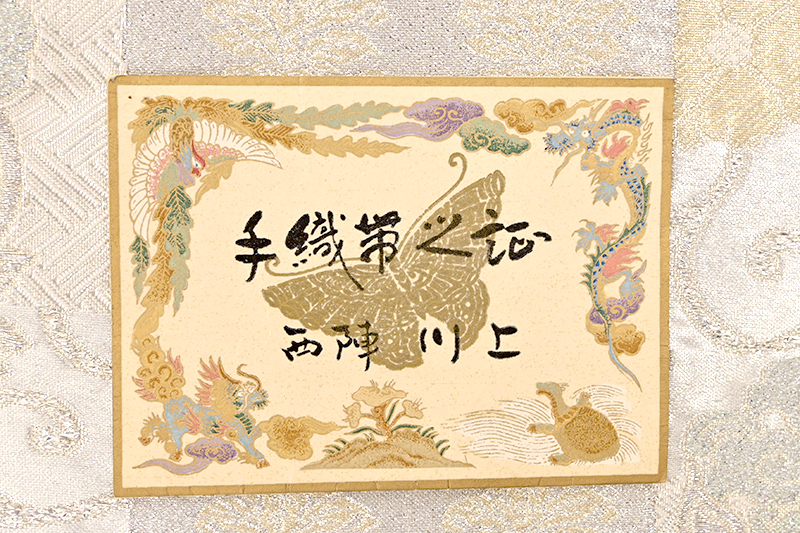 手織帯之証
西陣 川上